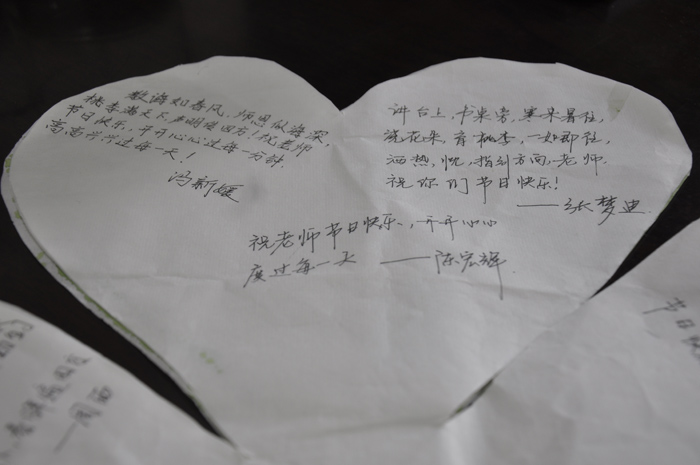 教诲如春风，师恩似海深，
桃李满天下，声明扬四方！祝老师
节日快乐，开开心心过每一分钟，
高高兴兴过每一天！
冯新媛
讲台上，书桌旁，寒来暑往，
浇花朵，育桃李，一如既往，
洒热忱，指引方向，老师，
祝你们节日快乐！
——张梦迪
祝老师节日快乐，开开心心
度过每一天 ——陈宏辉
节日快